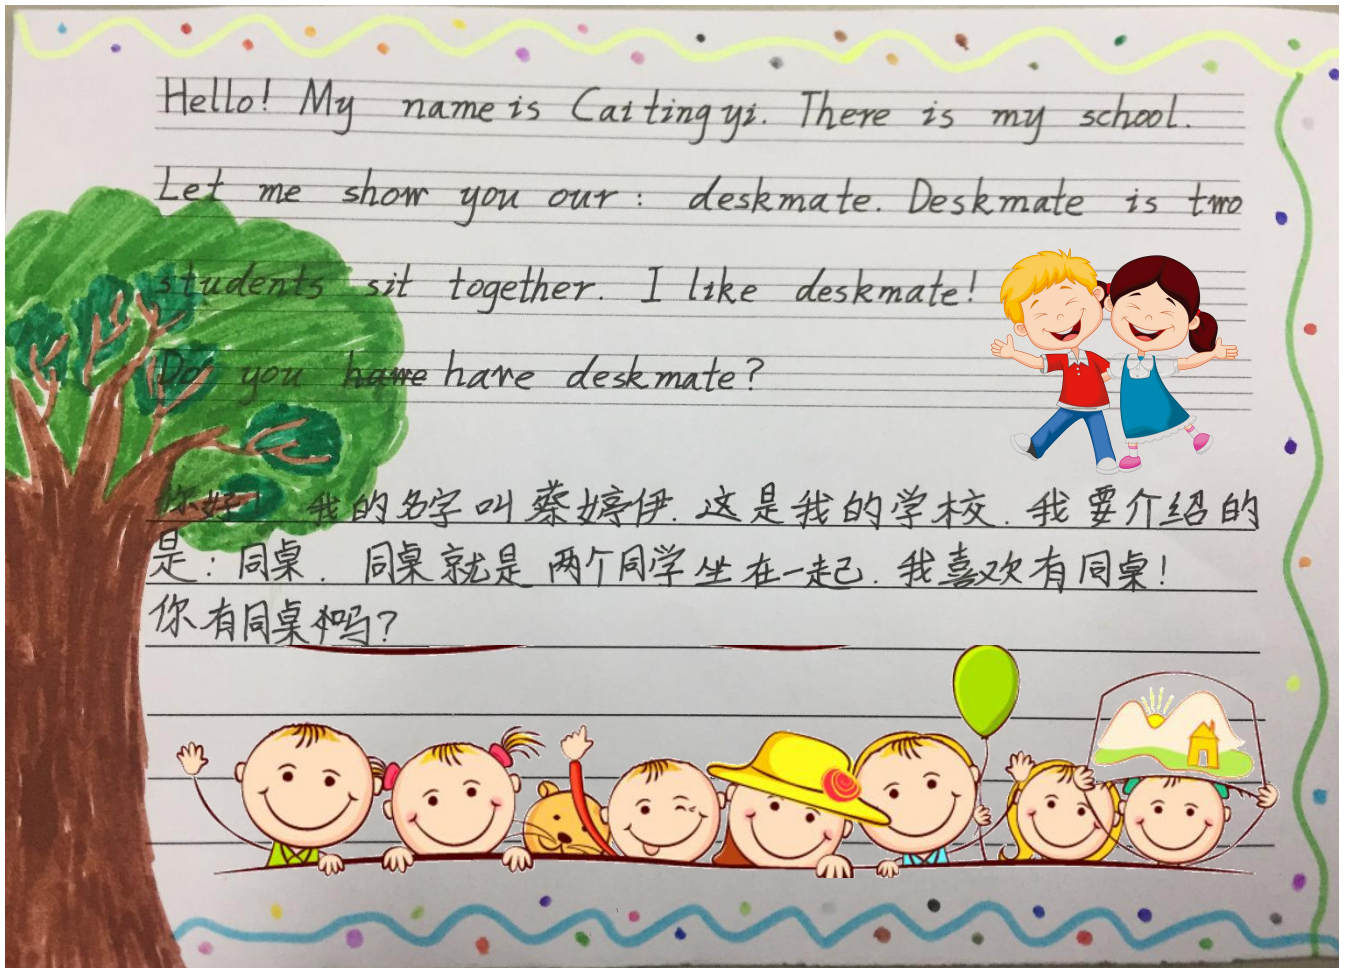 Hello! My name is Cai ting yi. There is my school.
Let me show you our : deskmate. Deskmate is two
students sit together. I like deskmate!
Do you have have deskmate?
你好！我的名字叫蔡婷伊.这是我的学校.我要介绍的
是:同桌.同桌就是两个同学坐在一起.我喜欢有同桌!
你有同桌吗?